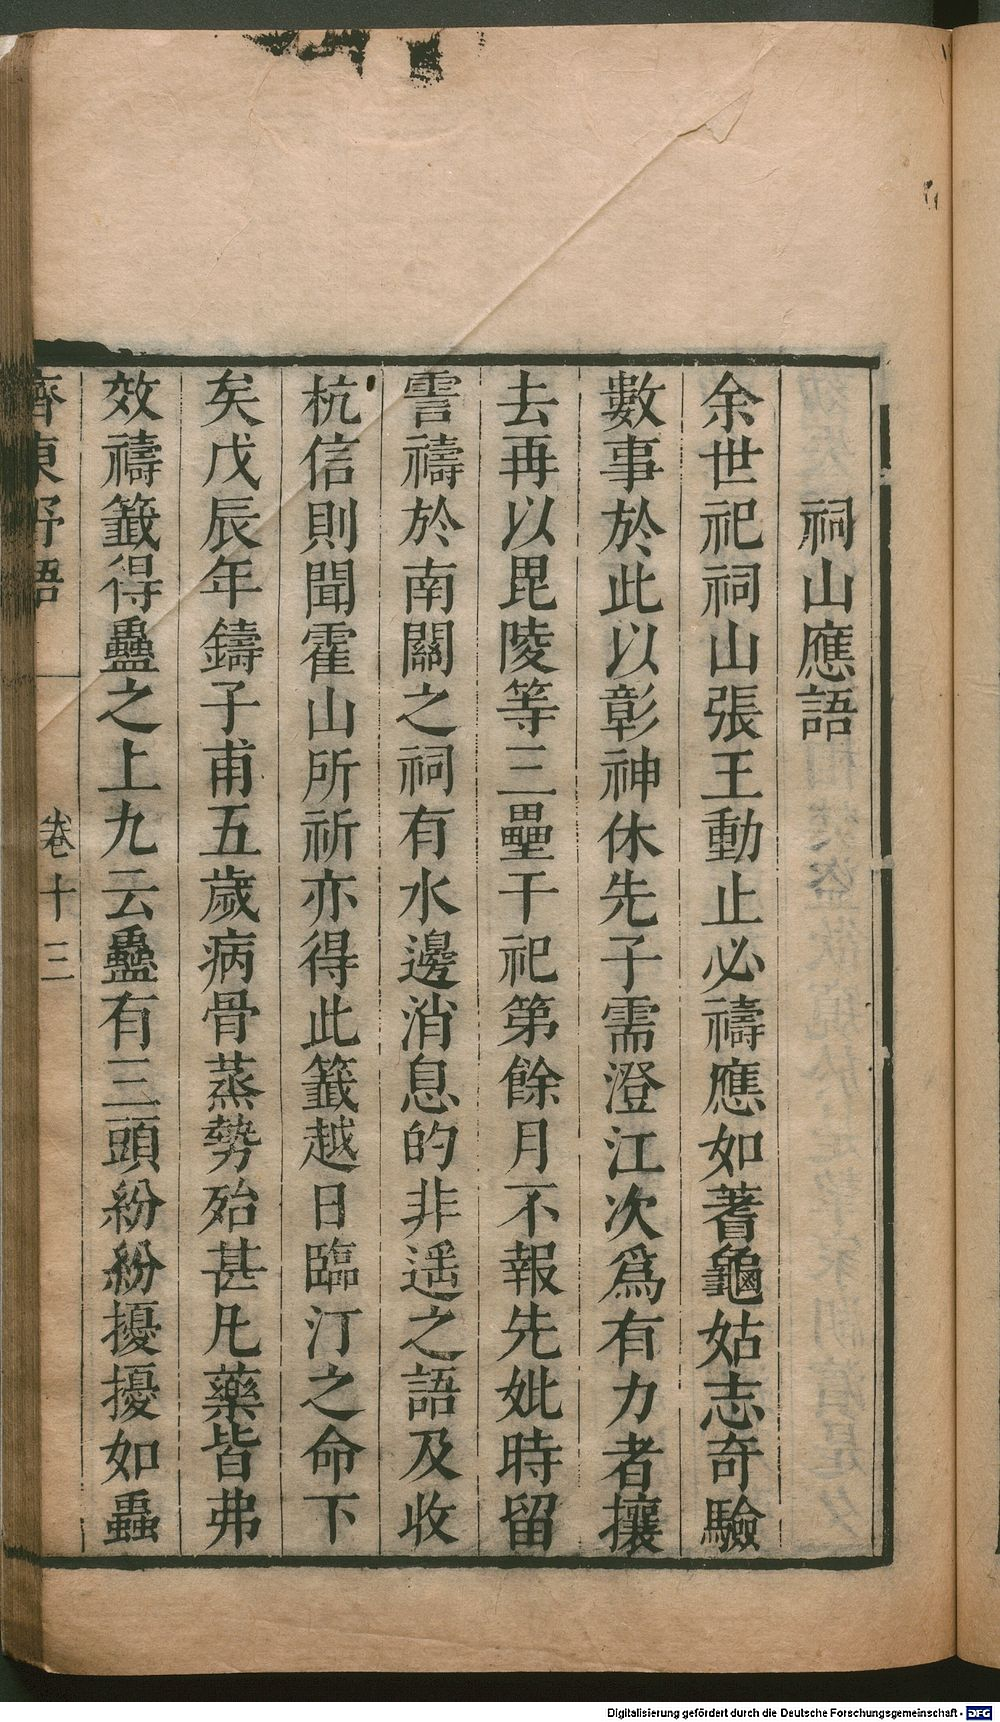 祠山應語
余世祀祠山張王動止必禱應如蓍龜姑志奇驗
數事於此以彰神休先子需澄江次爲有力者攘
去再以毘陵等三壘干祀第餘月不報先妣時留
霅禱於南關之祠有水邊消息的非遥之語及收
杭信則聞霍山所祈亦得此籖越日臨汀之命下
矣戊辰年鑄子甫五歲病骨蒸勢殆甚凡藥皆弗
效禱籖得蠱之上九云蠱有三頭紛紛擾擾如蟲
齊東野語 卷十三
Digitalisierung gefördert durch die Deutsche Forschungsgemeinschaft - DFG